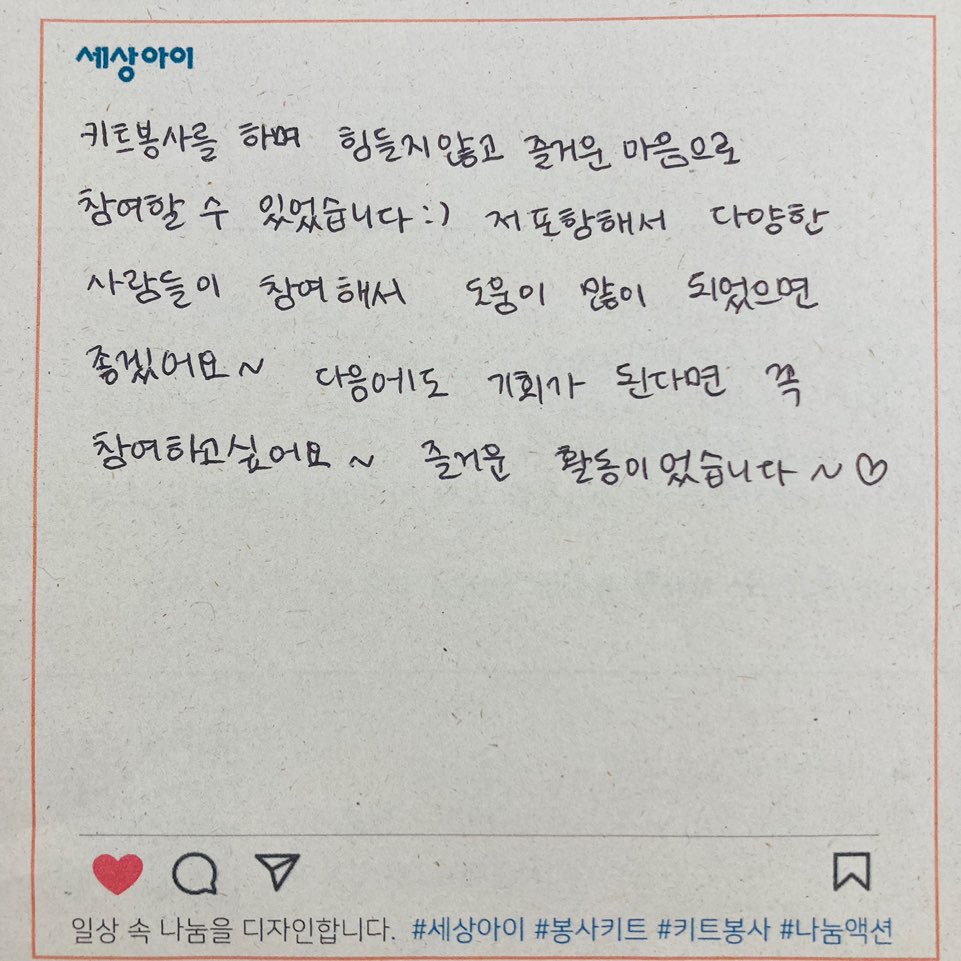 세상아이
키트봉사를 하며 힘들지않고 즐거운 마음으로
참여할 수 있었습니다:) 저포함해서 다양한
사람들이 참여해서 도움이 많이 되었으면
좋겠어요~ 다음에도 기회가 된다면 꼭
참여하고싶어요~ 즐거운 활동이었습니다~♡
일상 속 나눔을 디자인합니다. #세상아이 #봉사키트 #키트봉사 #나눔액션